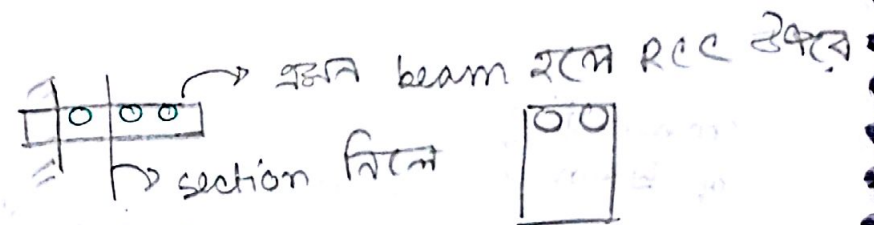 এমন beam হলে RCC উপরে
section নিলে